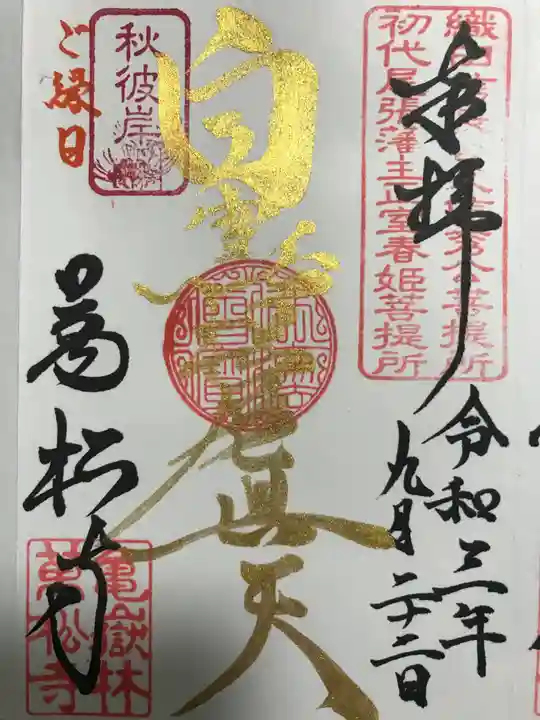 織田
秀公菩提所
初代尾張藩主正室春姫菩提所
奉拝
令和三年
九月二十二日
白雪
尼真天
秋彼岸
ご縁日
萬松寺
龜嶽林
萬松寺